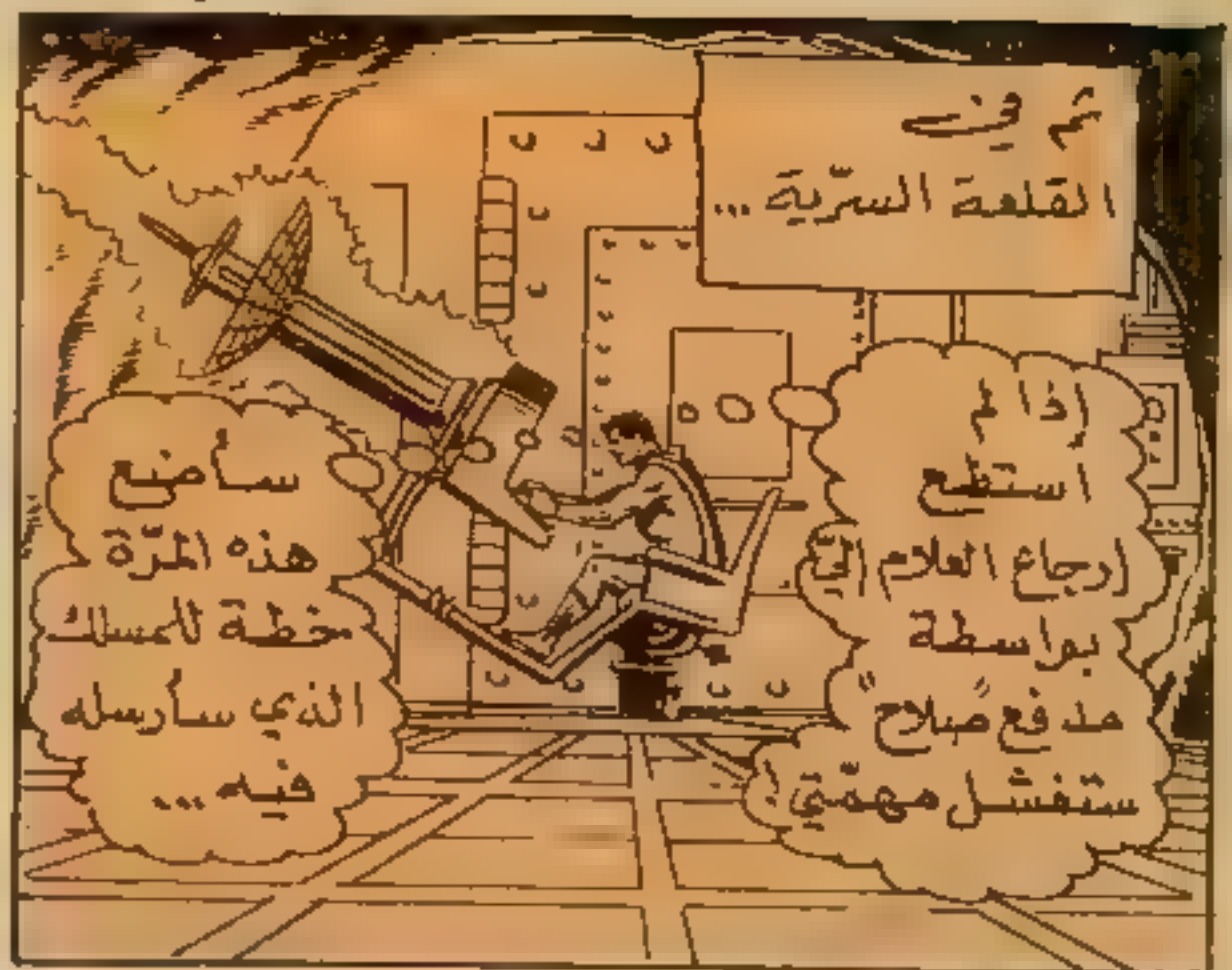 ثم في
القلعة السرّية ...
إذا لم
استطع
إرجاع الغلام اليّ
بواسطة
مدفع "صلاح"
ستفشل مهمّتي !
سأضع
هذه المرّة
خطة للمسلك
الذي سأرسله
فيه ...